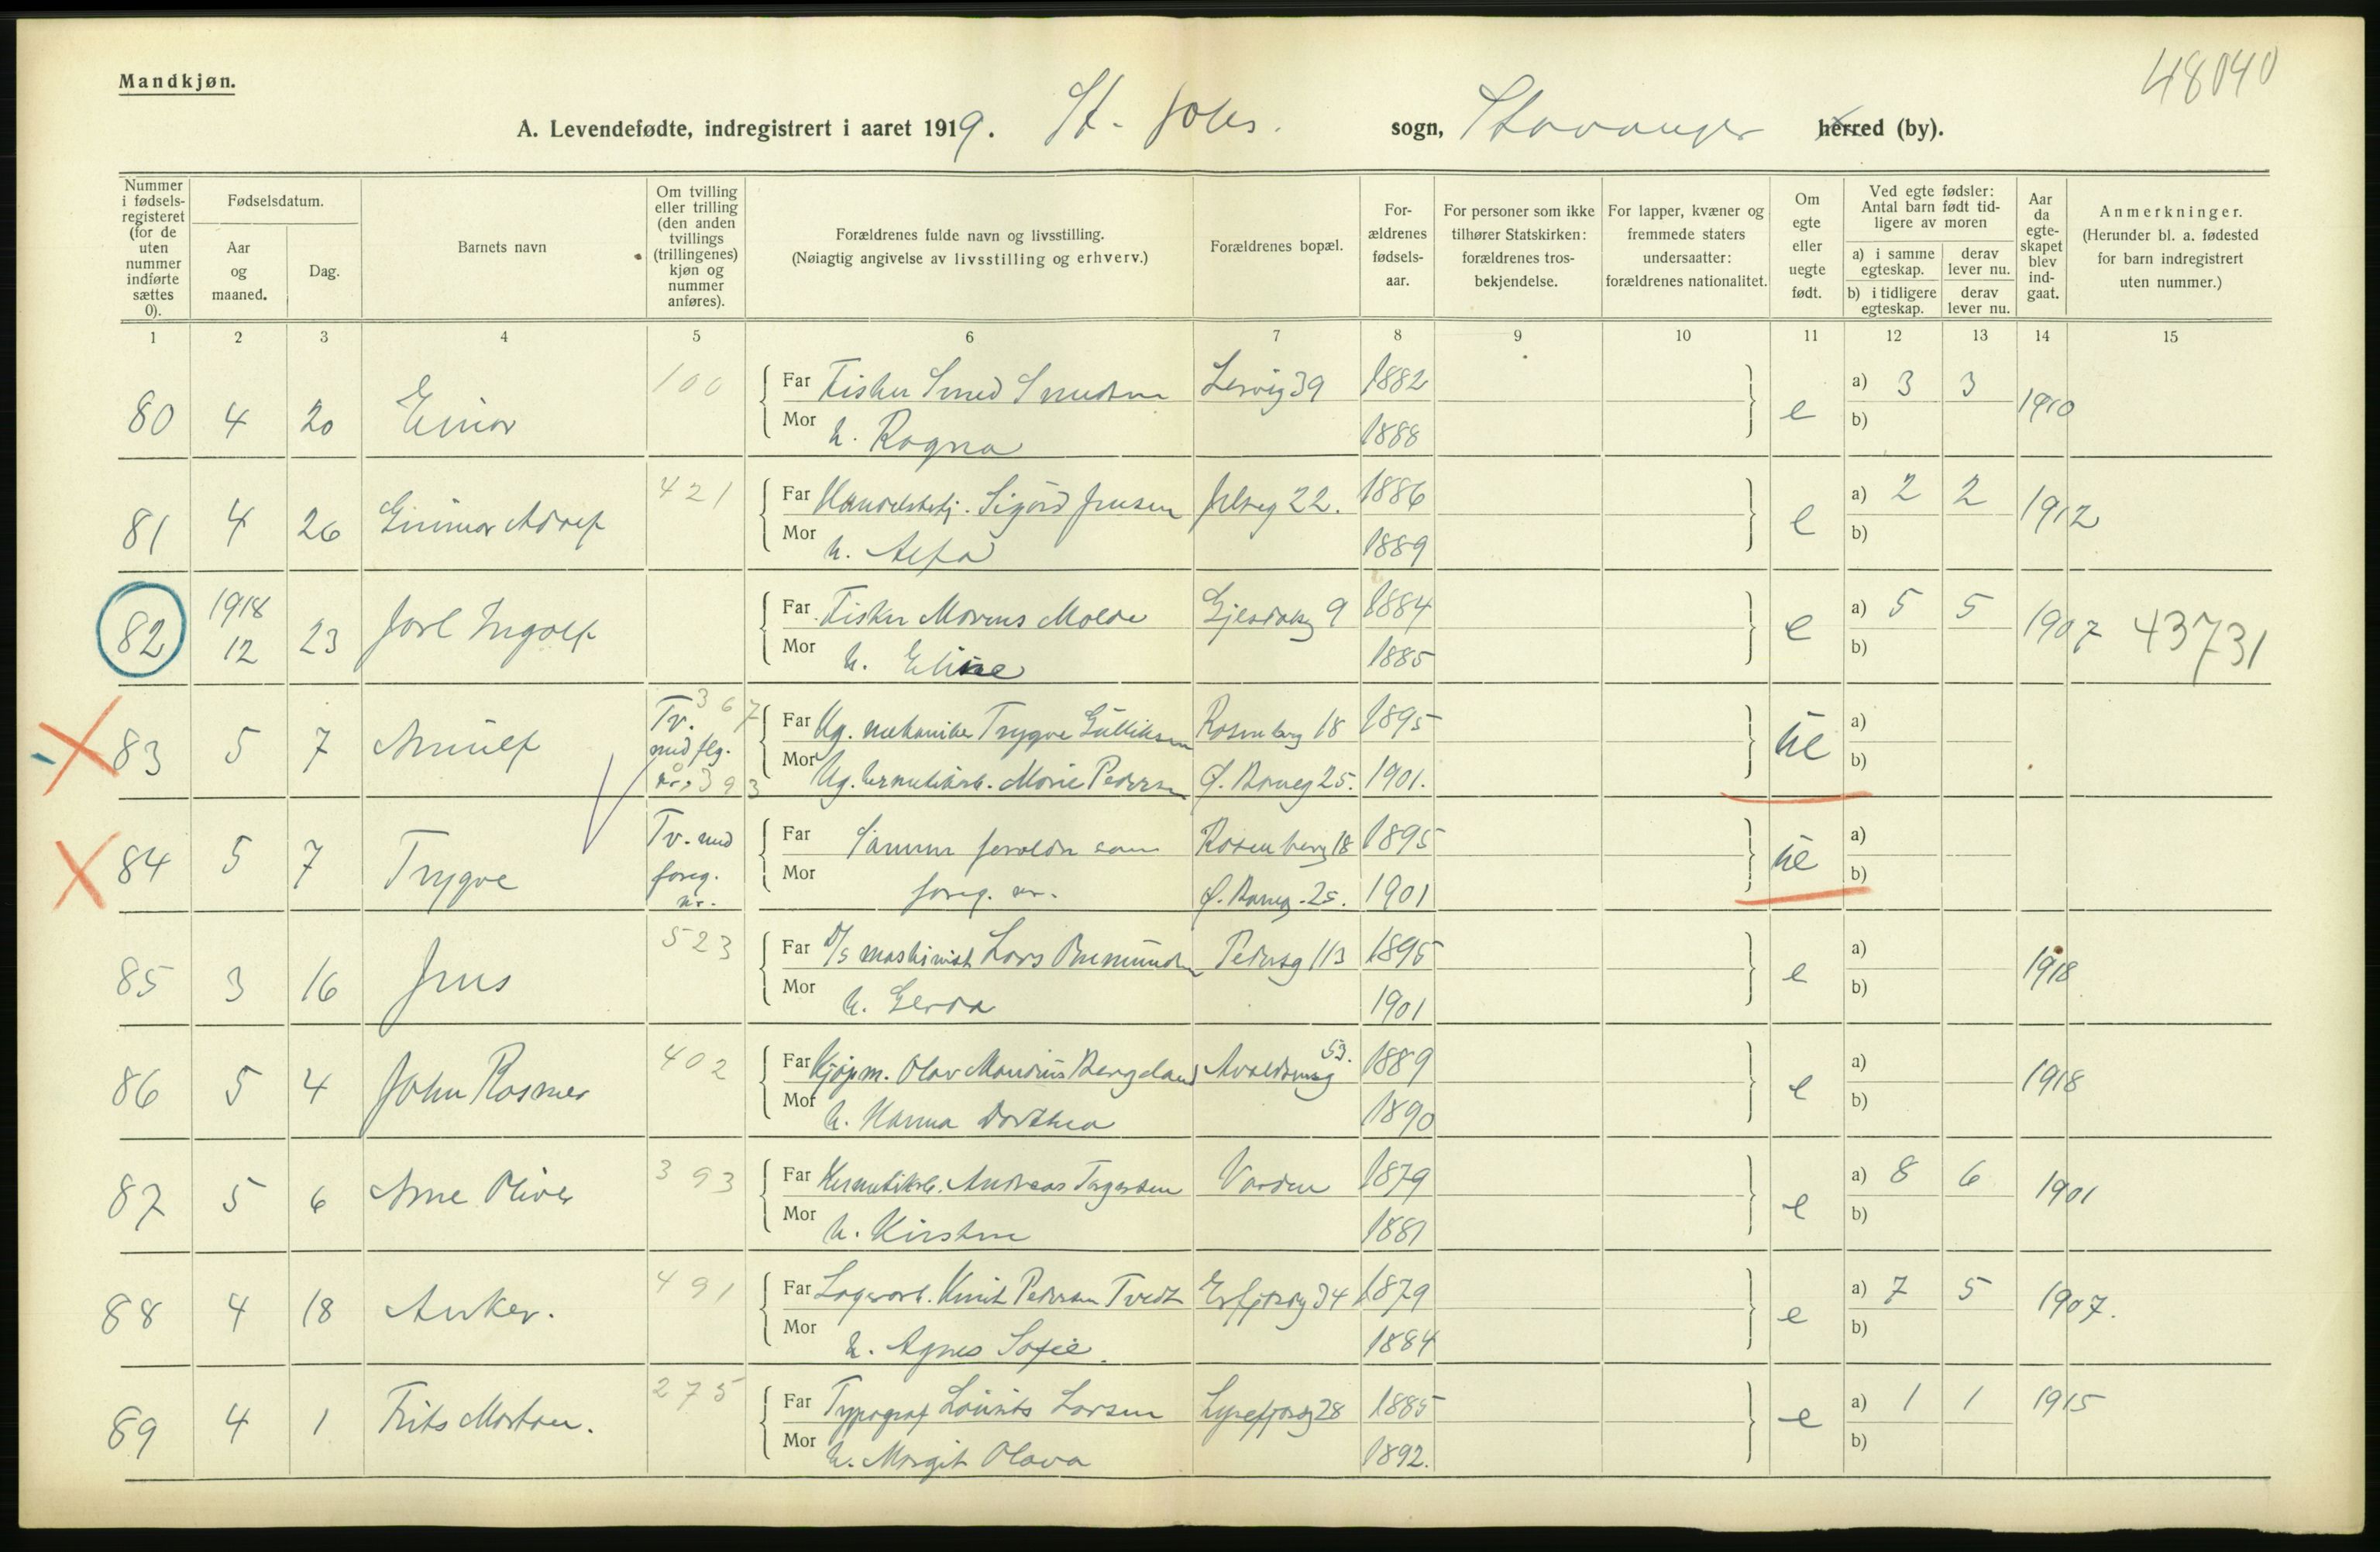 48040
Mandkjøn.
A. Levendefødte, indregistrert i aaret 1919. St. Johs. sogn, Stavanger herred (by).
Nummer i fødsels-registeret (for de uten nummer indførte sættes 0).
Fødselsdatum.
Aar og maaned.
Dag.
Barnets navn
Om tvilling eller trilling (den anden tvillings (trillingenes) kjøn og nummer anføres).
Forældrenes fulde navn og livsstilling.
(Nøiagtig angivelse av livsstilling og erhverv.)
Forældrenes bopæl.
For-ældrenes fødsels-aar.
For personer som ikke tilhører Statskirken: forældrenes tros-bekjendelse.
For lapper, kvæner og fremmede staters undersaatter: forældrenes nationalitet.
Om egte eller uegte født.
Ved egte fødsler: Antal barn født tid-ligere av moren
a) i samme egteskap.
derav lever nu.
b) i tidligere egteskap.
derav lever nu.
Aar da egte-skapet blev ind-gaat.
Anmerkninger.
(Herunder bl. a. fødested for barn indregistrert uten nummer.)
1 2 3 4 5 6 7 8 9 10 11 12 13 14 15
80 4 20 Einar 100 Far Fisker Smed Lervig 39 1882 e a) 3 3 1910
Mor h. Ragna 1888 b)
81 4 26 Adolf 421 Far Sigurd Jensen 22. 1886 e a) 2 2 1912
Mor h. 1889 b)
82 1918 12 23 Jarl Ingolf Far Fisker Molde 9 1884 e a) 5 5 1907 43731
Mor h. Eline 1885 b)
83 5 7 Arnulf Tv. med flg. nr. 367 393 Far Ug. mekaniker Trygve Gulliksen Rosenberg 18 1895 ue a)
Mor Ug. hermetikarb. Marie Pedersen Ø. 25. 1901. b)
84 5 7 Trygve Tv. med foreg. nr. Far Samme foreldre som Rosenberg 18 1895 ue a)
Mor foreg. nr. Ø. 25. 1901 b)
85 3 16 Jens 523 Far D/s maskinist Lars Pedersg 113 1895 e a) 1918
Mor h. Gerda 1901 b)
86 5 4 John Rasmer 402 Far Kjøpm. Olav Bergeland 53. 1889 e a) 1918
Mor h. Hanna Dorthea 1890 b)
87 5 6 Arne Oliver 393 Far Hermetikarb. Andreas Torgersen Varden 1879 e a) 8 6 1901
Mor h. Kirsten 1881 b)
88 4 18 Anker. 491 Far Lagerarb. Knut Pedersen Tvedt Erfjordg 34 1879 e a) 7 5 1907.
Mor h. Agnes Sofie. 1884 b)
89 4 1 Frits Morton. 275 Far Typograf Lauritz Larsen Lysefjordg 28 1885 e a) 1 1 1915
Mor h. Margit Olava 1892. b)